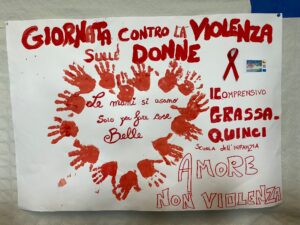 GIORNATA CONTRO LA VIOLENZA
SULLE DONNE
Le mani si usano
Solo per fare cose
Belle
IComprensivo
GRASSA-
QUINCI
Scuola dell'INFANZIA
AMORE
NON VIOLENZA